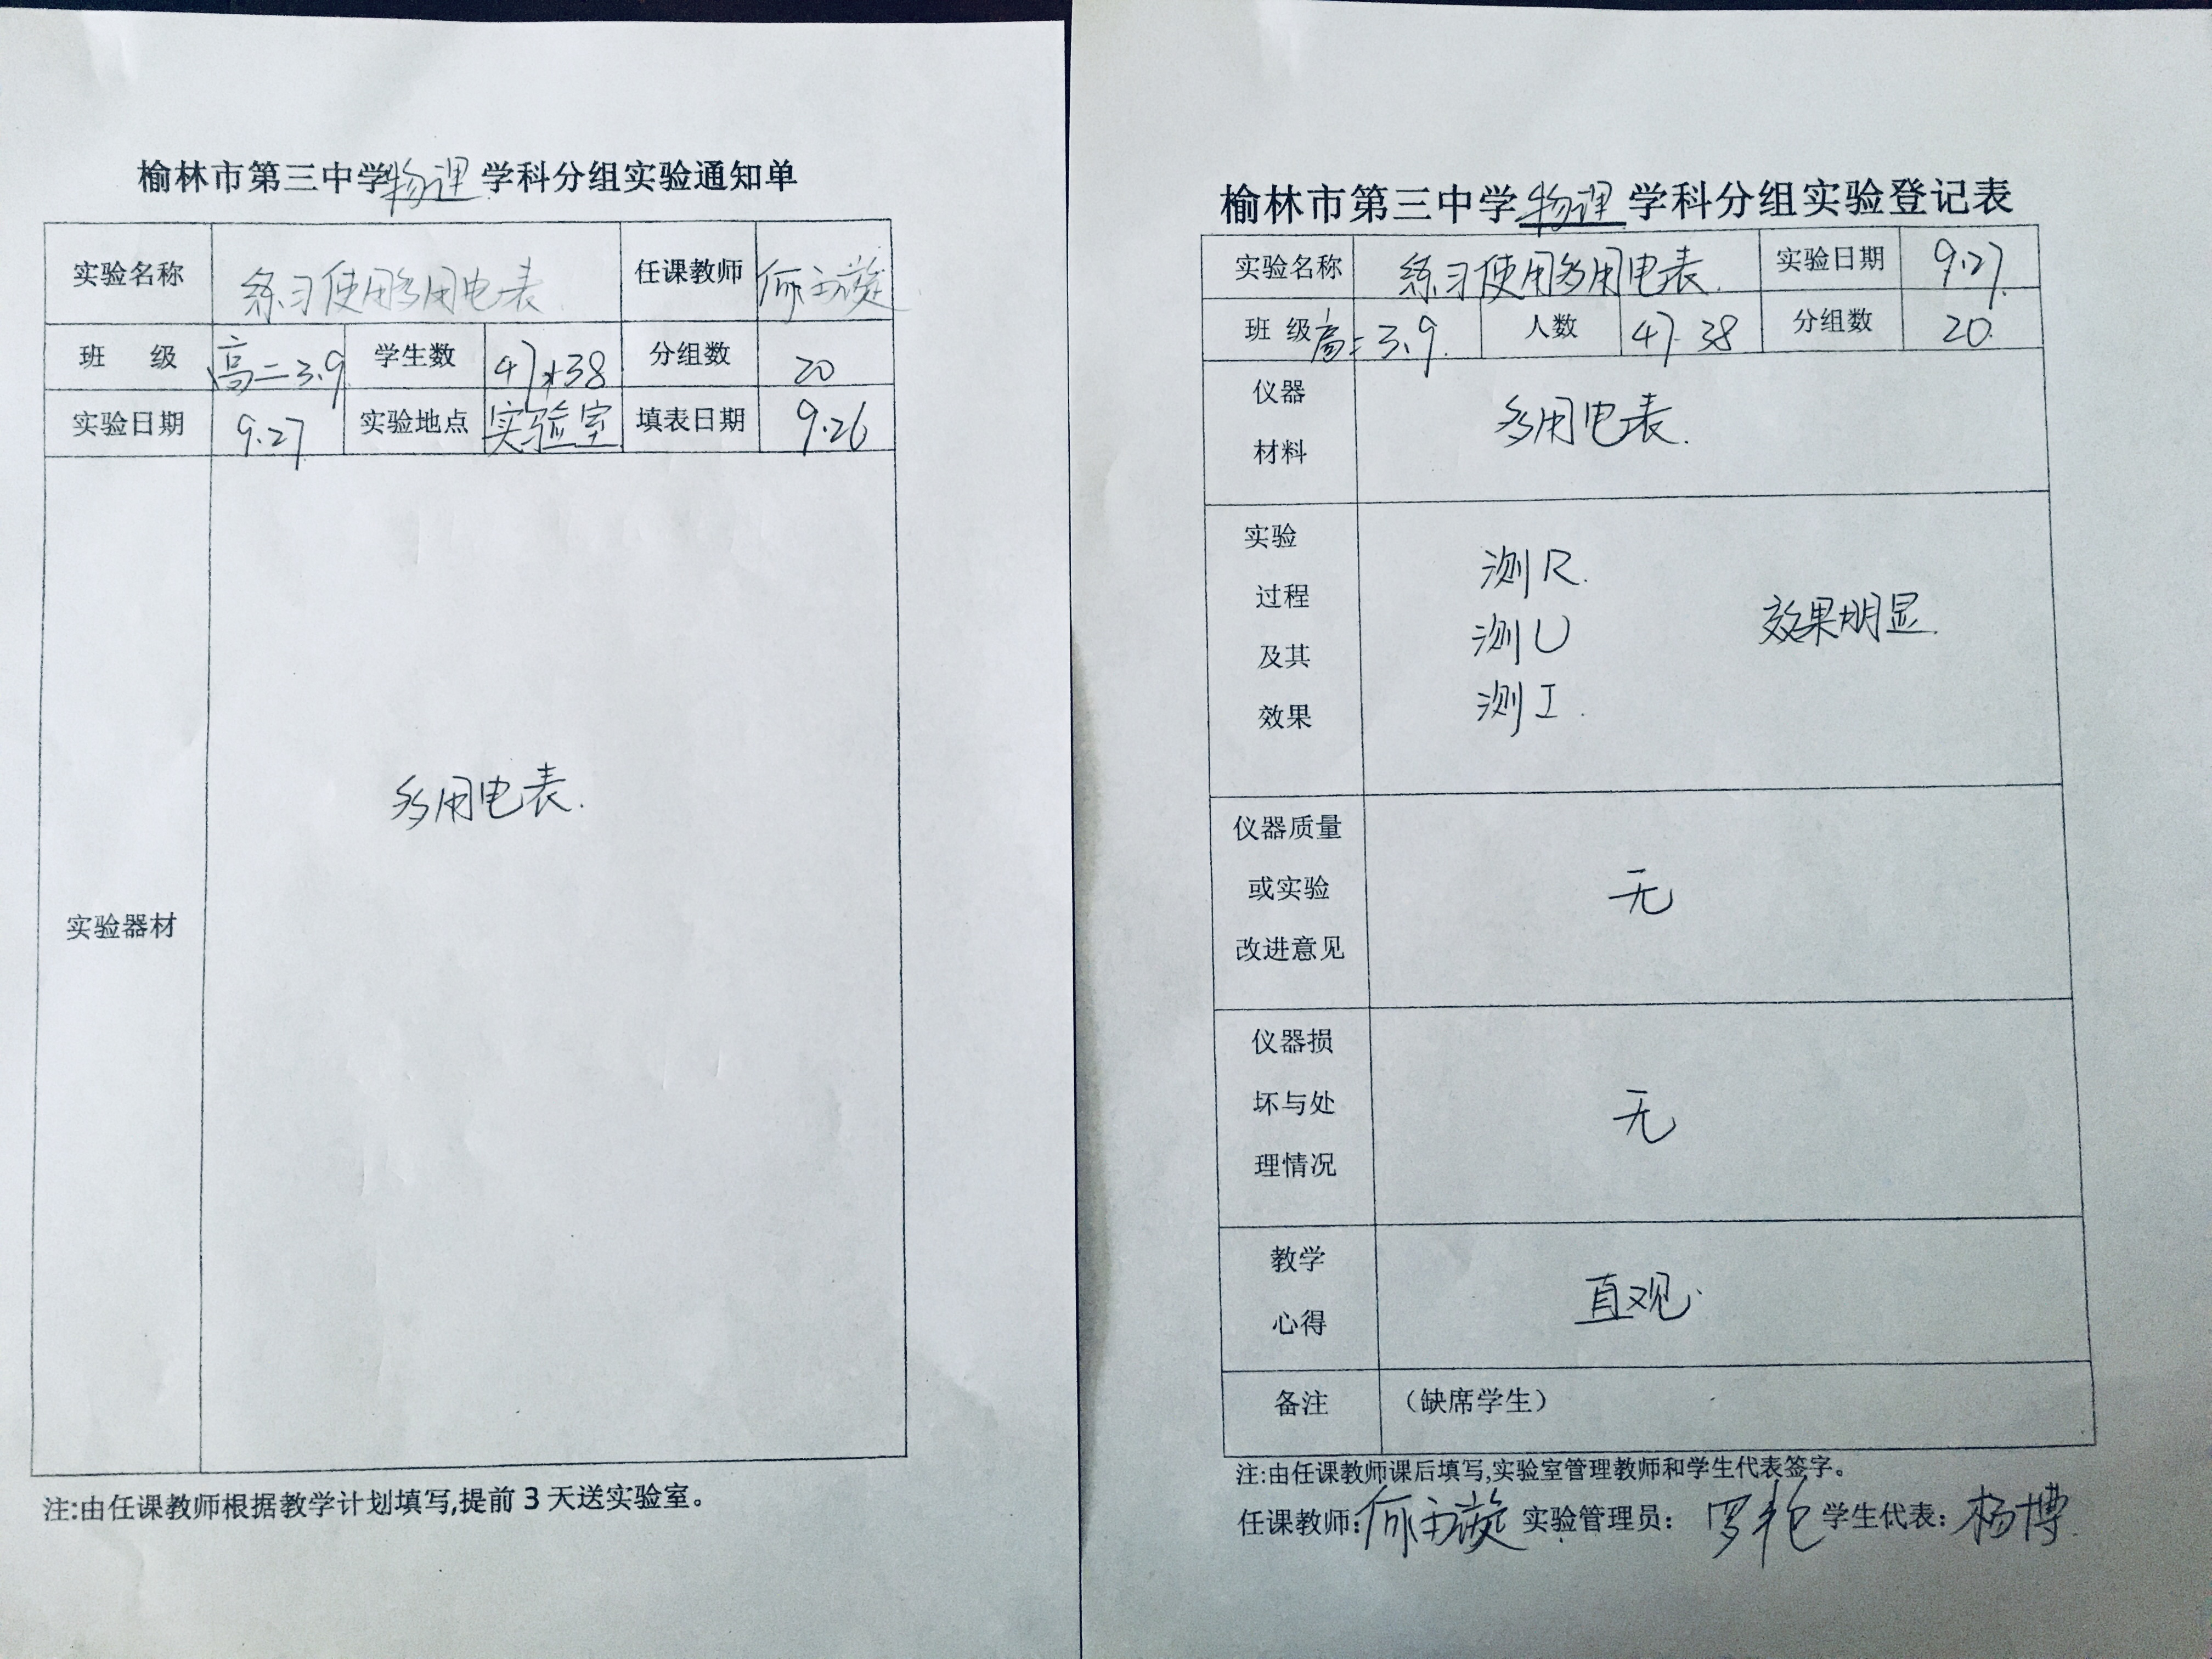 榆林市第三中学物理学科分组实验通知单
实验名称 练习使用多用电表. 任课教师 何
班 级 高二3.9 学生数 47+38 分组数 20
实验日期 9.27 实验地点 实验室 填表日期 9.26
实验器材 多用电表.
注:由任课教师根据教学计划填写,提前3天送实验室。
榆林市第三中学物理学科分组实验登记表
实验名称 练习使用多用电表. 实验日期 9.27.
班 级 高二3.9. 人数 47 38 分组数 20.
仪器
材料
多用电表.
实验
过程
及其
效果
测R.
测U
测I.
效果明显.
仪器质量
或实验
改进意见
无
仪器损
坏与处
理情况
无
教学
心得
直观.
备注 （缺席学生）
注:由任课教师课后填写,实验室管理教师和学生代表签字。
任课教师:何 实验管理员: 罗 学生代表: 杨博.